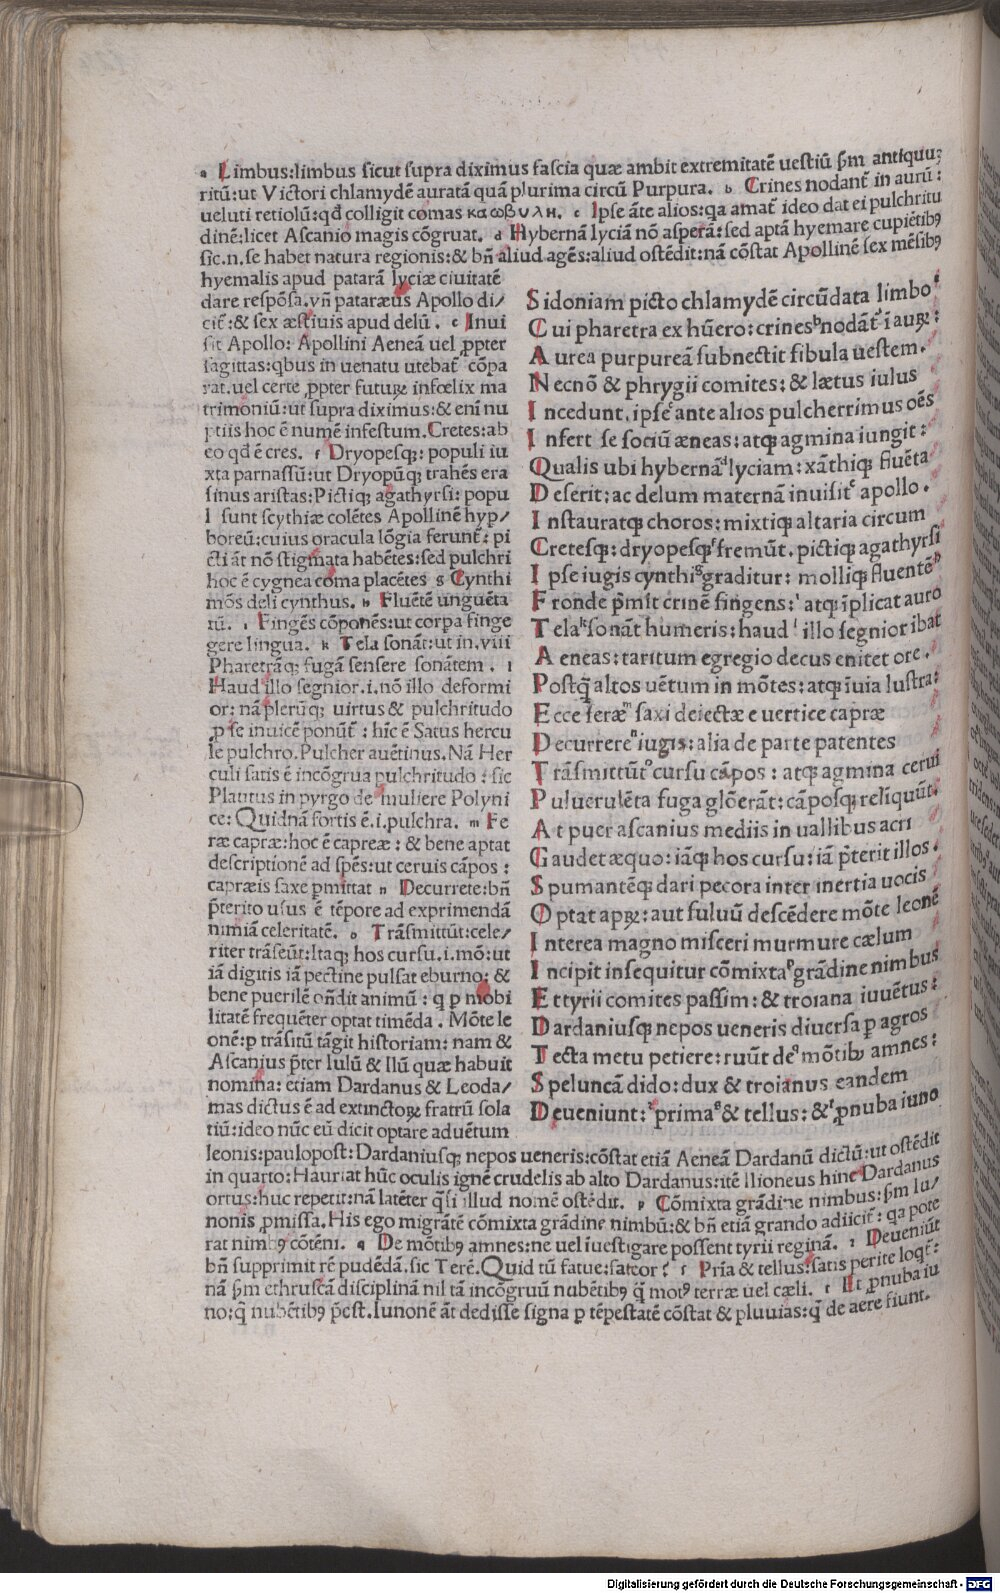 a Limbus:limbus sicut supra diximus fascia quæ ambit extremitatē uestiū ẜm antiquuꝫ
ritū:ut Victori chlamydē auratā quā plurima circū Purpura. b Crines nodant̄ in aurū:
ueluti retiolū:qđ colligit comas καωβυλη. c Ipse āte alios:qa amat̄ ideo dat ei pulchritu
dinē:licet Ascanio magis cōgruat. d Hybernā lyciā nō asperā:sed aptā hyemare cupiētibꝰ
sic.n.se habet natura regionis:& bn̄ aliud agēs:aliud ostēdit:nā cōstat Apollinē sex mēsibꝰ
hyemalis apud patarā lyciæ ciuitatē
dare respōsa.vn̄ pataræus Apollo di/
cit̄:& sex æstiuis apud delū. e Inui
sit Apollo: Apollini Aeneā uel ꝓpter
sagittas:qbus in uenatu utebat̄ cōpa
rat.uel certe ꝓpter futuꝝ infœlix ma
trimoniū:ut supra diximus:& eni nu
ptiis hoc ē numē infestum.Cretes:ab
eo qđ ē cres. f Dryopesqꝫ: populi iu
xta parnassū:ut Dryopūqꝫ trahēs era
sinus aristas:Pictiqꝫ agathyrsi: popu
l sunt scythiæ colētes Apollinē hyp/
boreū:cuius oracula lōgia ferunt̄: pi
cti āt nō stigmata habētes:sed pulchri
hoc ē cygnea coma placētes g Cynthi
mōs deli cynthus. h Fluētē unguēta
tū. i Fingēs cōponēs:ut corpa finge
gere lingua. k Tela sonāt:ut in.viii
Pharetrāqꝫ fugā sensere sonātem. l
Haud illo segnior.i.nō illo deformi
or: nā plerūqꝫ uirtus & pulchritudo
ꝓ se inuicē ponūt̄ : hīc ē Satus hercu
le pulchro.Pulcher auētinus.Nā Her
culi satis ē incōgrua pulchritudo : sic
Plautus in pyrgo de muliere Polyni
ce: Quidnā fortis ē.i.pulchra. m Fe
ræ capræ:hoc ē capreæ : & bene aptat
descriptionē ad spēs:ut ceruis cāpos :
capræis saxe ꝑmittat n Decurrete:bn̄
p̄terito usus ē tēpore ad exprimendā
nimiā celeritatē. o Trāsmittūt:cele/
riter trāseūt:Itaqꝫ hos cursu.i.mō:ut
iā digitis iā pectine pulsat eburno: &
bene puerilē on̄dit animū : q ꝑ mobi
litatē frequēter optat timēda. Mōte le
onē:ꝑ trāsitū tāgit historiam: nam &
Ascanius p̄ter Iulū & Ilū quæ habuit
nomina: etiam Dardanus & Leoda/
mas dictus ē ad extinctoꝝ fratrū sola
tiū:ideo nūc eū dicit optare aduētum
leonis:paulopost:Dardaniusqꝫ nepos ueneris:cōstat etiā Aeneā Dardanū dictū:ut ostēdit
in quarto:Hauriat hūc oculis ignē crudelis ab alto Dardanus:itē Ilioneus hinc Dardanus
ortus:huc repetit:nā latēter q̄si illud nomē ostēdit. p Cōmixta grādine nimbus:ẜm Iu/
nonis ꝓmissa.His ego migrātē cōmixta grādine nimbū:& bn̄ etiā grando adiicit̄: qa pote
rat nimbꝰ cōtēni. q De mōtibꝰ amnes:ne uel īuestigare possent tyrii reginā. r Deueniūt
bn̄ supprimit rē pudēdā.sic Terē.Quid tū fatue:fateor ? s Prīa & tellus:satis perite loqt̄:
nā ẜm ethruscā disciplinā nil tā incōgruū nubētibꝰ q̄ motꝰ terræ uel cæli. t Et ꝓnuba iu
no:q̄ nubētibꝰ p̄est.Iunonē āt dedisse signa ꝑ tēpestatē cōstat & pluuias:q̄ de aere fiunt.
Sidoniam picto chlamydē circūdata limbo a
Cui pharetra ex hūero:crines b nodāt̄ ī auꝝ:
Aurea purpureā subnectit fibula uestem.
Necnō & phrygii comites: & lætus iulus
Incedunt.ipse c ante alios pulcherrimus oēs
Infert se sociū æneas: atqꝫ agmina iungit:
Qualis ubi hybernā d lyciam: xāthiqꝫ fluēta
Deserit:ac delum maternā inuisit e apollo.
Instauratqꝫ choros: mixtiqꝫ altaria circum
Cretesqꝫ:dryopesqꝫ f fremūt.pictiqꝫ agathyrsi
Ipse iugis cynthi g graditur: molliqꝫ fluentē h
Fronde p̄mit crinē fingens: i atqꝫ īplicat auro
Tela k sonāt humeris:haud l illo segnior ibat
Aeneas:tantum egregio decus enitet ore.
Postq̄ altos uētum in mōtes: atqꝫ īuia lustra:
Ecce feræ m saxi deiectæ e uertice capræ
Decurrere n iugis:alia de parte patentes
Trāsmittūt o cursu cāpos : atqꝫ agmina cerui
Puluerulēta fuga glōerāt: cāposqꝫ relīquūt.
At puer ascanius mediis in uallibus acri
Gaudet æquo:iāqꝫ hos cursu:iā p̄terit illos.
Spumantēqꝫ dari pecora inter inertia uocis
Optat apꝝ:aut fuluū descēdere mōte leonē
Interea magno misceri murmure cælum
Incipit insequitur cōmixta p grādine nimbus
Et tyrii comites passim: & troiana iuuētus:
Dardaniusqꝫ nepos ueneris diuersa ꝑ agros
Tecta metu petiere: ruūt de q mōtibꝰ amnes:
Speluncā dido:dux & troianus eandem
Deueniunt: r prima s & tellus: & t ꝓnuba iuno
Digitalisierung gefördert durch die Deutsche Forschungsgemeinschaft - DFG